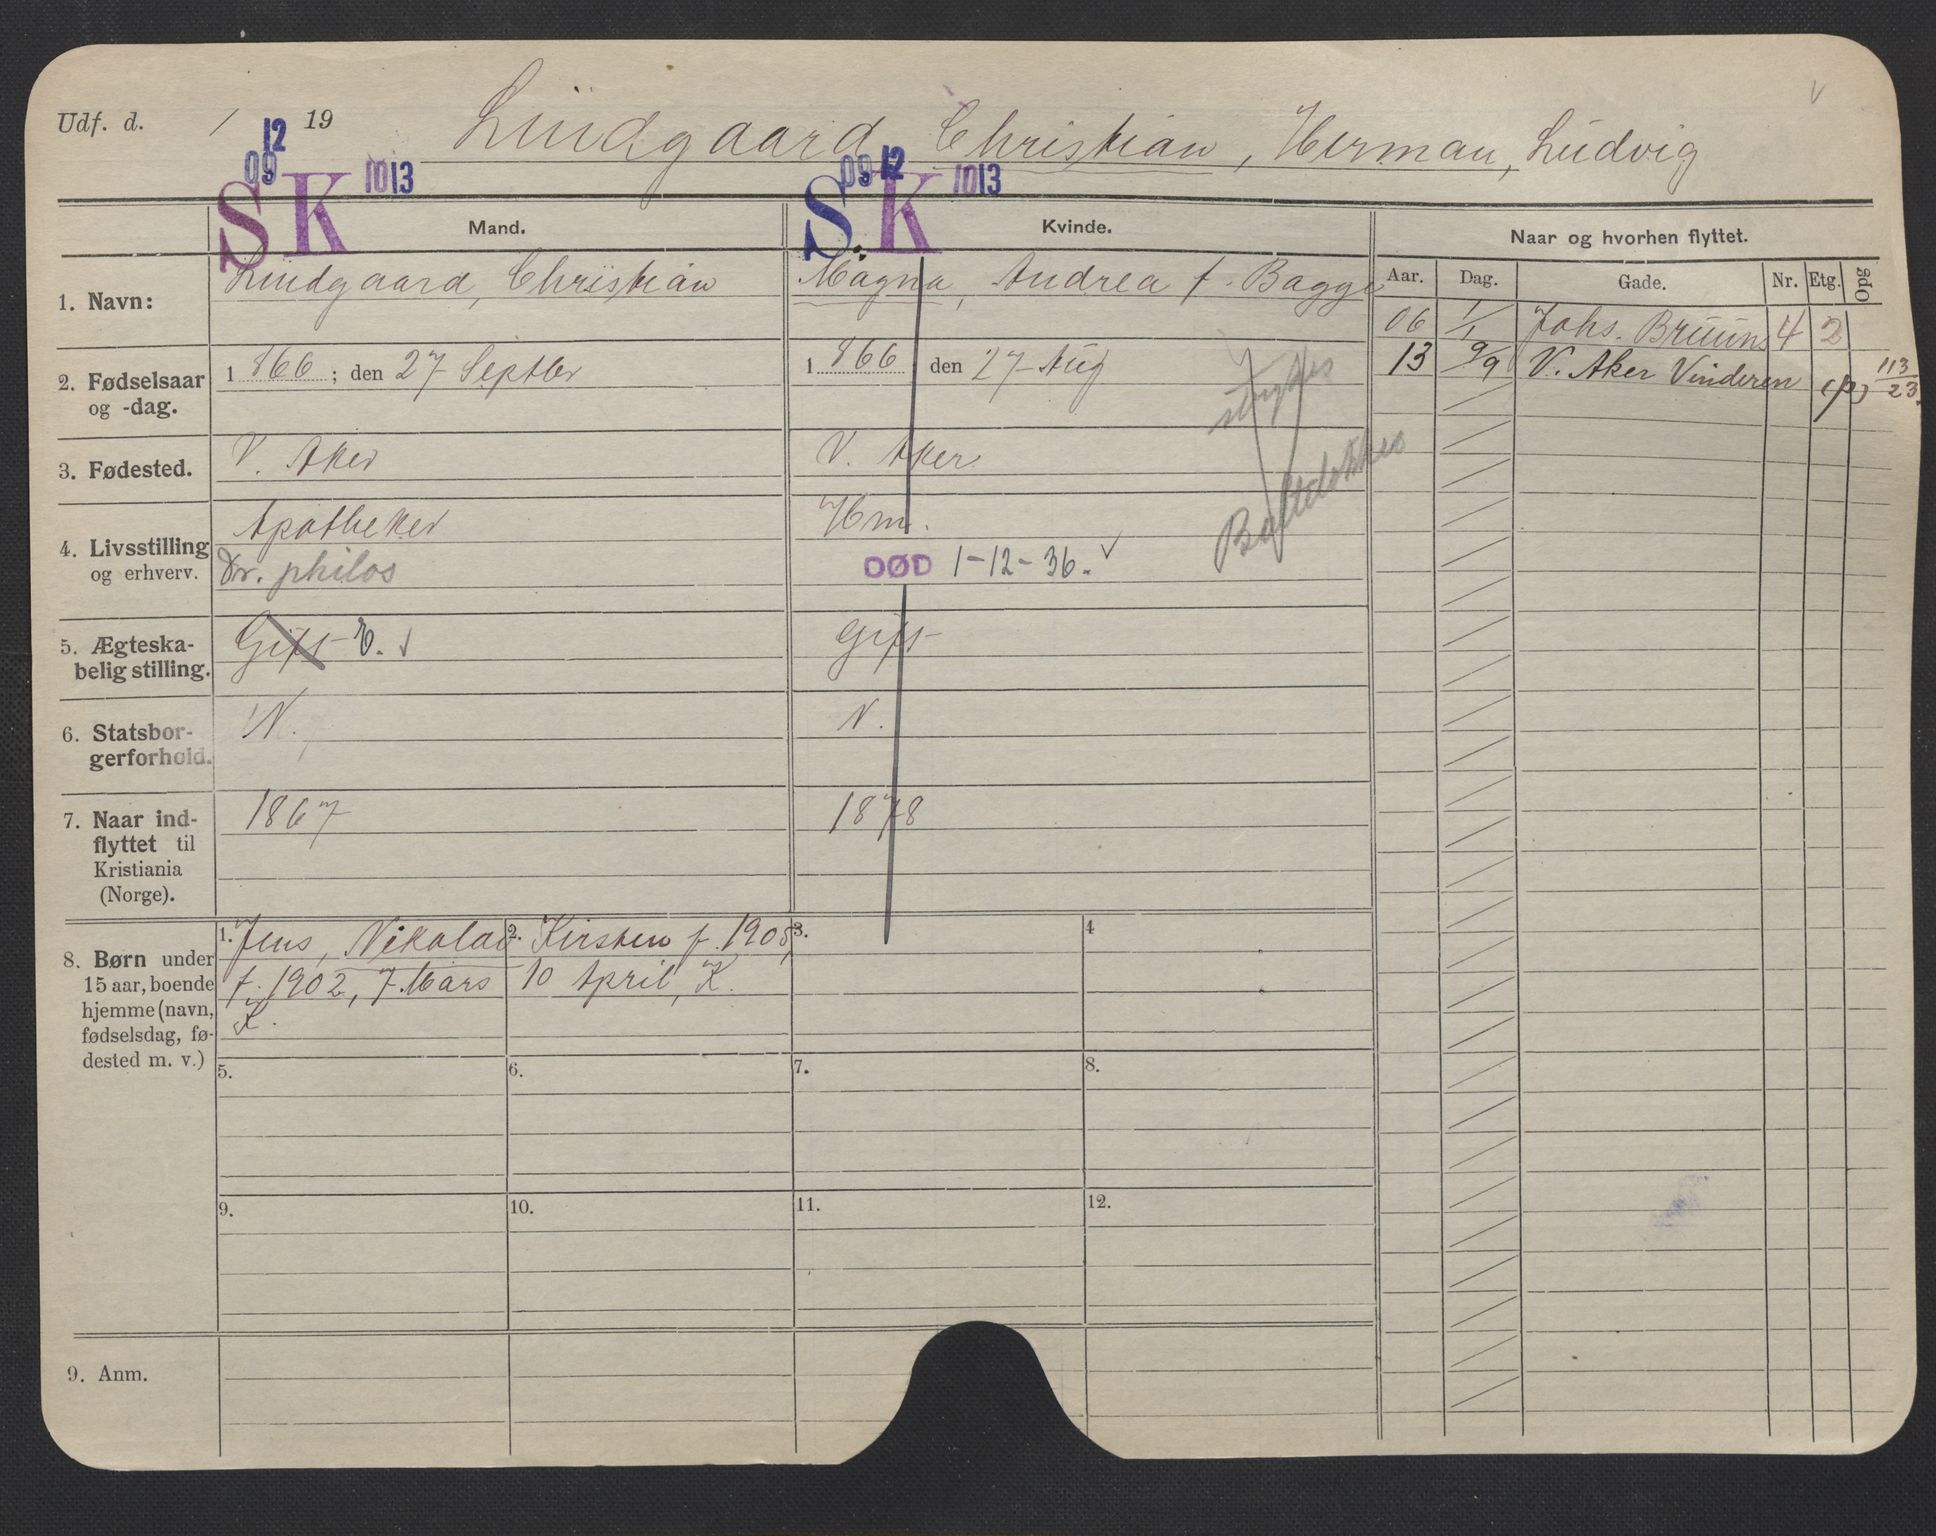 Udf. d. / 19
Lindgaard Christian, Herman, Ludvig
09 12 1013
SK
09 12 1013
S.K
Mand.
Kvinde.
Naar og hvorhen flyttet.
Aar. Dag. Gade. Nr. Etg. Opg
1. Navn:
Lindgaard, Christian
Magna, Andrea f. Bagge
06 1/1 Johs. Bruuns 4 2
13 9/9 V. Aker Vinderen (p) 113/23.
2. Fødselsaar
og -dag.
1 866 ; den 27 Septbr
1 866 ; den 27 Aug
strykes
3. Fødested.
V. Aker
V. Aker
4. Livsstilling
og erhverv.
Apotheker
Dr. philos
Hm.
DØD 1-12-36.
5. Ægteska-
belig stilling.
Gift E.
gift
6. Statsbor-
gerforhold.
N.
N.
7. Naar ind-
flyttet til
Kristiania
(Norge).
1867
1878
8. Børn under
15 aar, boende
hjemme (navn,
fødselsdag, fø-
dested m. v.)
1. Jens, Nikolai
f. 1902, 7 Mars
K.
2. Kirsten f. 1908,
10 April, K.
3.
4
5.
6.
7.
8.
9.
10.
11.
12.
9. Anm.